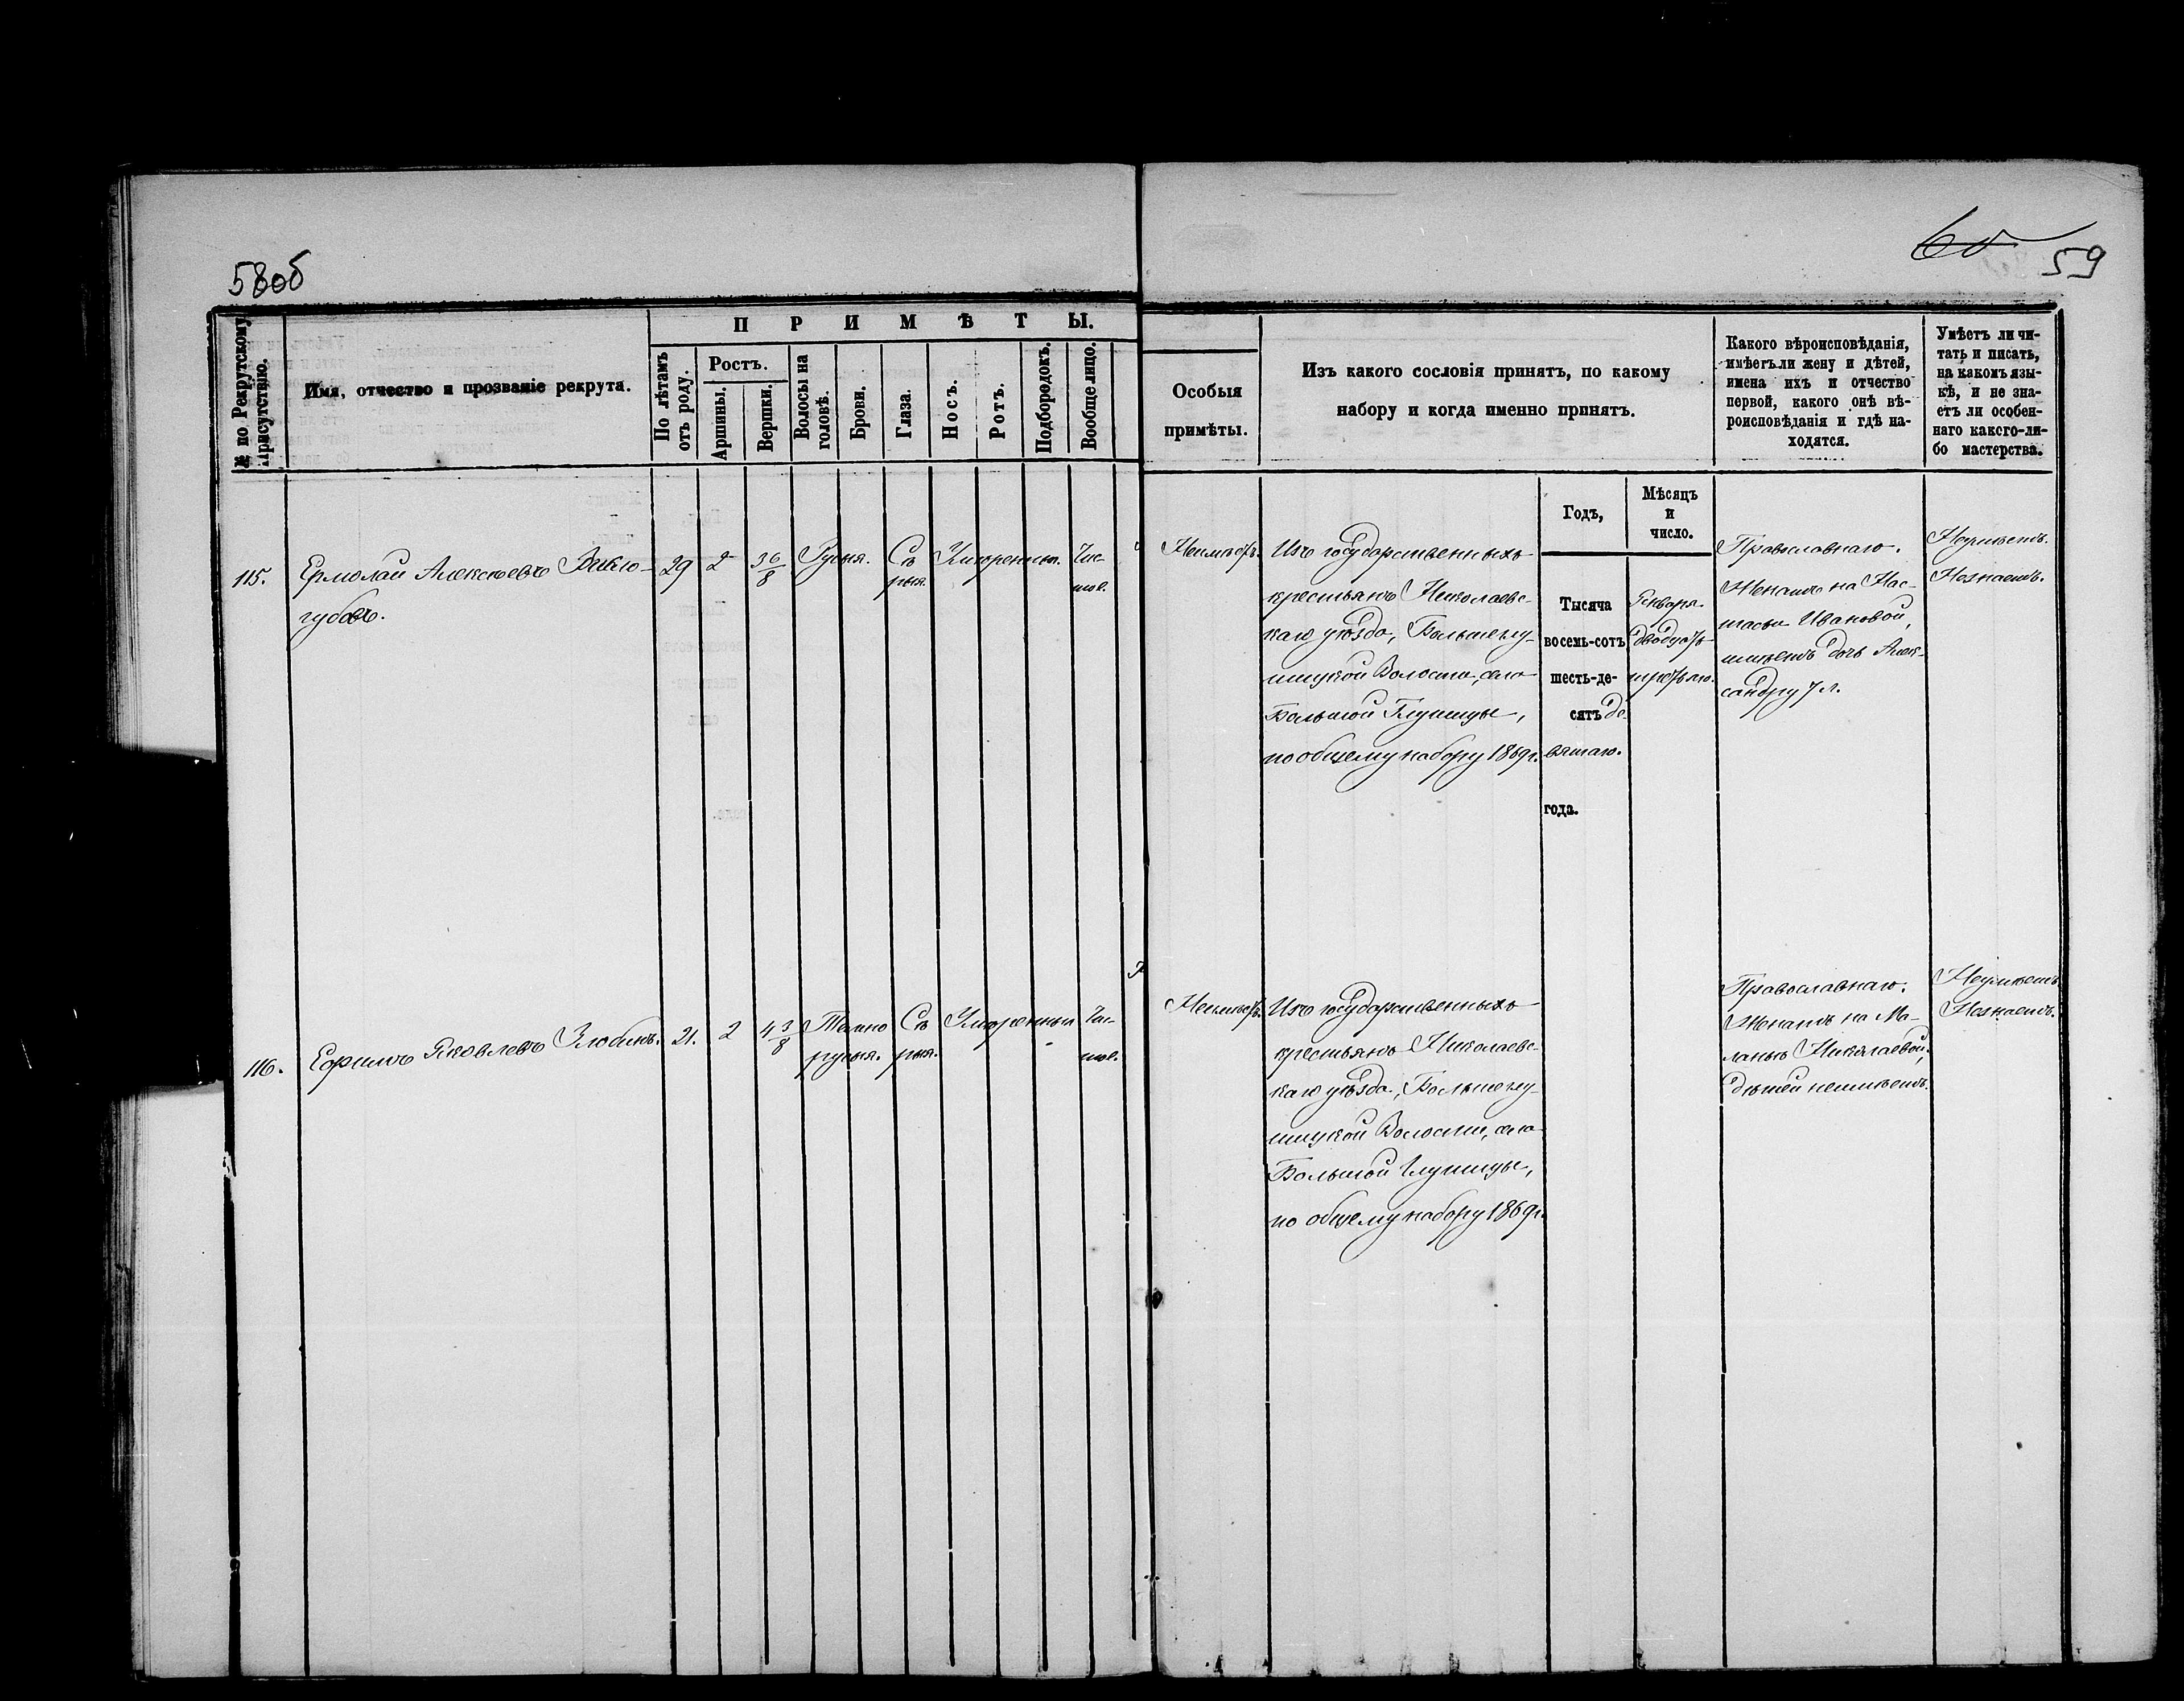 58об
60
59
№ по Рекрутскому Присутствію.
Имя, отчество и прозваніе рекрута.
ПРИМѢТЫ.
По лѣтамъ отъ роду.
Ростъ.
Аршины.
Вершки.
Волосы на головѣ.
Брови.
Глаза.
Носъ.
Ротъ.
Подбородокъ.
Вообще лицо.
Особыя
примѣты.
Изъ какого сословія принятъ, по какому
набору и когда именно принятъ.
Какого вѣроисповѣданія,
имѣетъ ли жену и дѣтей,
имена ихъ и отчество
первой, какого онѣ вѣ-
роисповѣданія и гдѣ на-
ходятся.
Умѣетъ ли чи-
тать и писать,
на какомъ язы-
кѣ, и не зна-
етъ ли особен-
наго какого-ли-
бо мастерства.
Годъ,
Мѣсяцъ
и
число.
115.
Ермолай Алексѣевъ
губовъ.
29
2
3 6/8
Русыя.
Сѣ
рыя.
Умѣренныя.
Чис-
тое.
Неимѣетъ.
Изъ государственныхъ
крестьянъ Николаевс-
каго уѣзда, Большеглу-
шицкой Волости, села
Большой Глушицы,
по общему набору 1869 г.
Тысяча
восемь-сотъ
шесть-де-
сятъ де-
вятаго.
года.
Января.
двадцать
третьяго.
Православнаго.
Женатъ на Нас-
тасьи Ивановой,
имѣетъ дочь Алек-
сандру 7 л.
Неумѣетъ.
Незнаетъ.
116.
Ефимъ Яковлевъ Злобинъ.
21.
2
4 3/8
Темно
русыя.
Сѣ
рыя.
Умѣренныя
Чис-
тое.
Неимѣетъ.
Изъ государственныхъ
крестьянъ Николаевс-
каго уѣзда, Большеглу-
шицкой Волости, села
Большой Глушицы,
по общему набору 1869 г.
Православнаго.
Женатъ на Ма-
ланьи Николаевой,
дѣтей неимѣетъ.
Неумѣетъ
Незнаетъ.